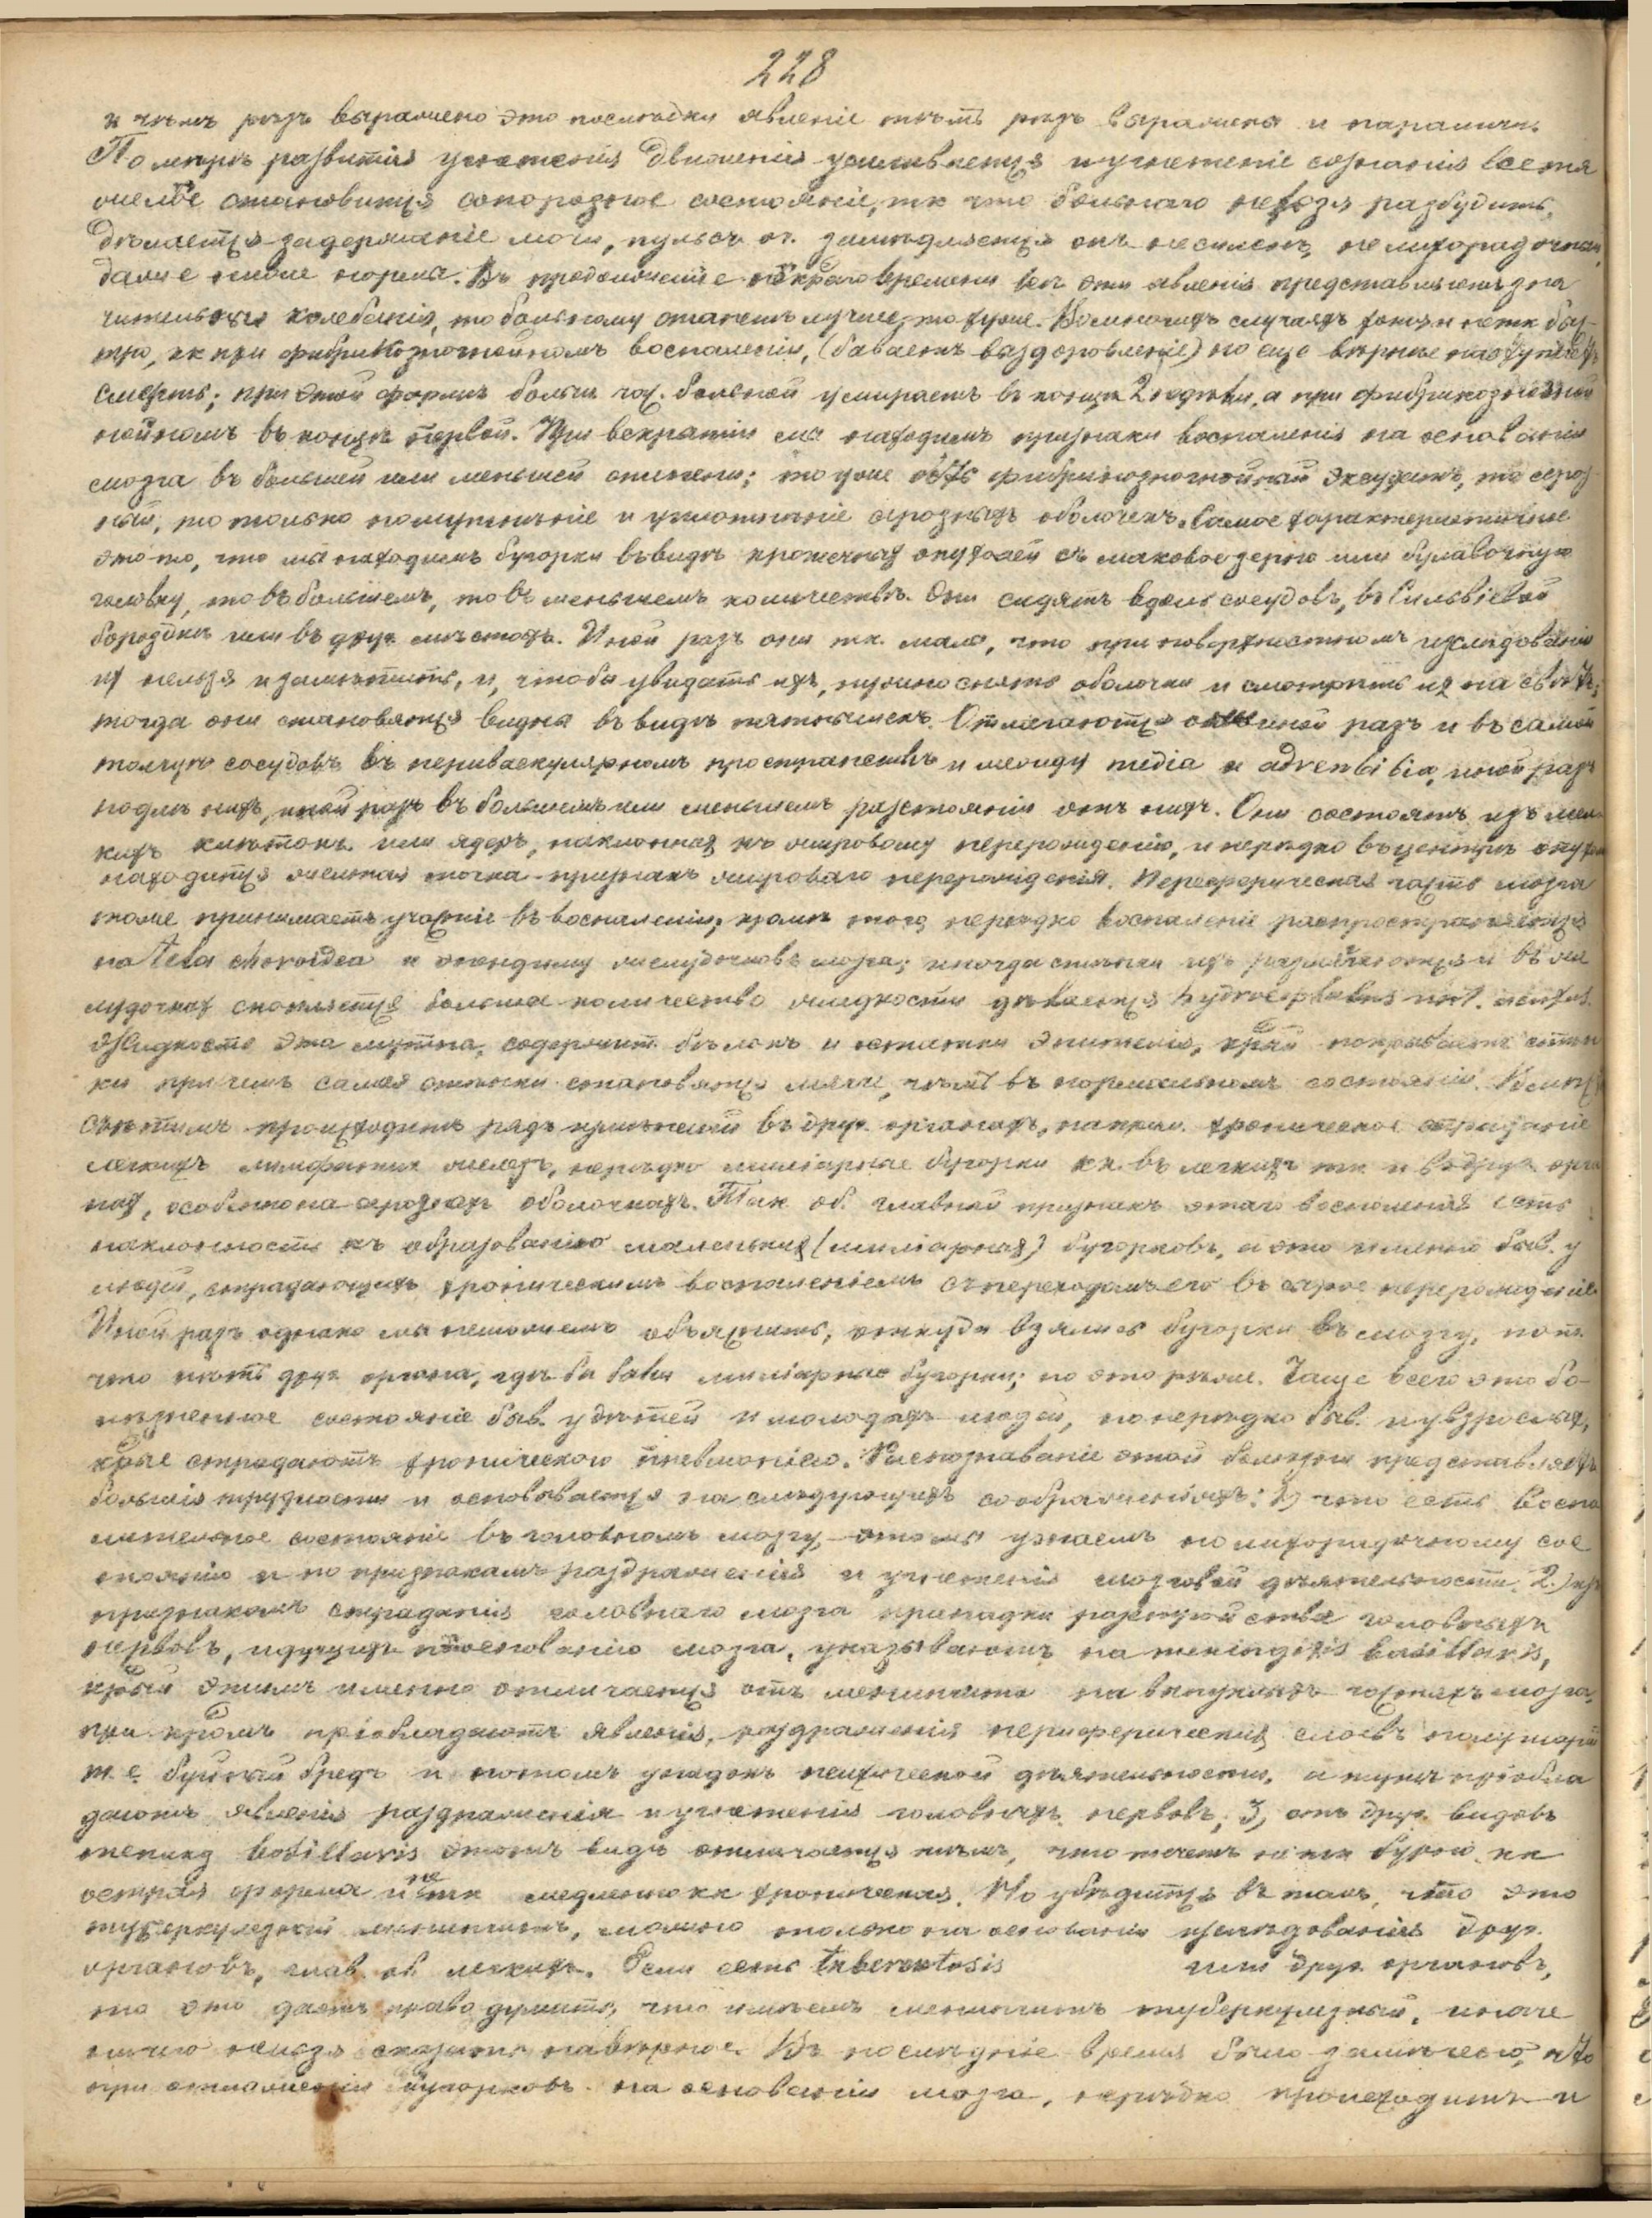 228
и чѣмъ рѣзъ выражено это послѣдни явленіе тѣмъ рѣзъ выражены и параличи
По мѣрѣ развитія угнетенія движенія усиливается и угнетеніе сознанія все тя
желѣе становится сопорозное состояніе, тк что больнаго нельзя разбудить,
дѣлается задержаніе мочи, пульсъ оч. замедляется онъ не силенъ, не лихорадочный,
даже ниже нормы. Въ продолженіе нѣкраго времени всѣ эти явленія представляютъ зна
чительныя колебанія, то больному станетъ лучше, то хуже. Во многихъ случаяхъ хотя и не тк бы-
тро, кк при фибринозногнойномъ воспаленіи, (бываетъ выздоровленіе) но еще вѣрнѣе наступаетъ
смерть; при этой формѣ больш. чаc. больной умираетъ въ концѣ 2 недѣли, а при фибринозно
гнойномъ въ концѣ первой. При вскрытіи мы находимъ признаки воспаленія на основаніи
мозга въ большей или меньшей степени; то уже есть фибринозногнойный эксудатъ, то сероз-
ный, то только помутнѣніе и уплотнѣніе серозныхъ оболочекъ. Самое характеристичное
это то, что мы находимъ бугорки въ видѣ крошечныхъ опухолей съ маковое зерно или булавочную
головку, то въ большемъ, то въ меньшемъ количествѣ. Они сидятъ вдоль сосудовъ, въ Сильвіевой
бороздкѣ или въ друг. мѣстахъ. Иной разъ они тк. малы, что при поверхностномъ изслѣдованіи
их нельзя и замѣтить, и, чтобы увидать ихъ, нужно снять оболочки и смотрѣть их на свѣтъ;
тогда они становятся видны въ видѣ пятнышекъ. Отлагаются они иной разъ и въ самой
толщѣ сосудовъ въ периваскулярномъ пространствѣ и между media и adventitia, иной разъ
подлѣ нихъ, иной разъ въ большемъ или меньшемъ разстояніи отъ нихъ. Они состоятъ изъ мел
кихъ клѣтокъ или ядеръ, наклонныхъ къ жировому перерожденію, и нерѣдко въ центрѣ опухоли
находится желтая точка - признакъ жироваго перерожденія. Переферическая часть мозга
тоже принимаетъ участіе въ воспаленіи, кромѣ того нерѣдко воспаленіе распространяется
на tela choroidea и эпендиму желудочковъ мозга; иногда стѣнки ихъ размягчаются и въ же
лудочках скопляется большое количество жидкости дѣлается hydrocephalus int. acutus.
Жидкость эта мутна, содержитъ бѣлокъ и остатки эпителія, крый покрываетъ стѣн
ки причемъ самыя стѣнки становятся мягче, чѣмъ въ нормальномъ состояніи. Вмѣстѣ
съ тѣмъ происходитъ рядъ измѣненій въ друг. органахъ, наприм. хроническое страданіе
легкихъ лимфатич. железъ, нерѣдко миліарные бугорки кк. въ легкихъ тк и въ друг. орга
нах, особенно на серозныхъ оболочкахъ. Так об. главный признакъ этаго воспаленія есть
наклонность къ образованію маленьких (миліарных) бугорковъ, а это именно быв. у
людей, страдающихъ хроническимъ воспаленіемъ съ переходомъ его въ сырное перерожденіе.
Иной разъ однако мы не можемъ объяснить, откуда взялись бугорки въ мозгу, пот.
что нѣтъ друг. органа, гдѣ бы были миліарные бугорки; но это рѣже. Чаще всего это бо-
лѣзненное состояніе быв. у дѣтей и молодыхъ людей, но нерѣдко быв. и у взрослых,
крые страдаютъ хроническою пневмоніею. Распознаваніе этой болѣзни представляетъ
большія трудности и основывается на слѣдующихъ соображеніяхъ: 1) что есть воспа
лительное состояніе въ головномъ мозгу, это мы узнаемъ по лихорадочному сос
тоянію и по признакамъ раздраженія и угнетенія мозговой дѣятельности. 2) изъ
признаковъ страданія головнаго мозга припадки разстройства головныхъ
нервовъ, идущихъ по основанію мозга, указываютъ на meningitis basillaris,
крый этимъ именно отличается отъ менингита на выпуклыхъ частяхъ мозга,
при кромъ преобладаютъ явленія, раздраженія периферических слоевъ полушарій
т. е. буйный бредъ и потомъ упадокъ психической дѣятельности, а тутъ преобла
даютъ явленія раздраженія и угнетенія головныхъ нервовъ; 3) отъ друг. видовъ
мening basillaris этотъ видъ отличается тѣмъ, что течетъ не тк бурно кк
острая форма и не тк медленно кк хроническая. Но убѣдиться въ томъ, что это
туберкулезный менингитъ, можно только на основаніи изслѣдованія друг.
органовъ, глав. об. легкихъ. Если есть tuberculosis или друг. органовъ,
то это даетъ право думать, что имѣемъ менингитъ туберкулезный, иначе
ничего нельзя сказать навѣрное. Въ послѣдніе время было замѣчено, что
при отложеніи бугорковъ на основаніи мозга, нерѣдко происходитъ и